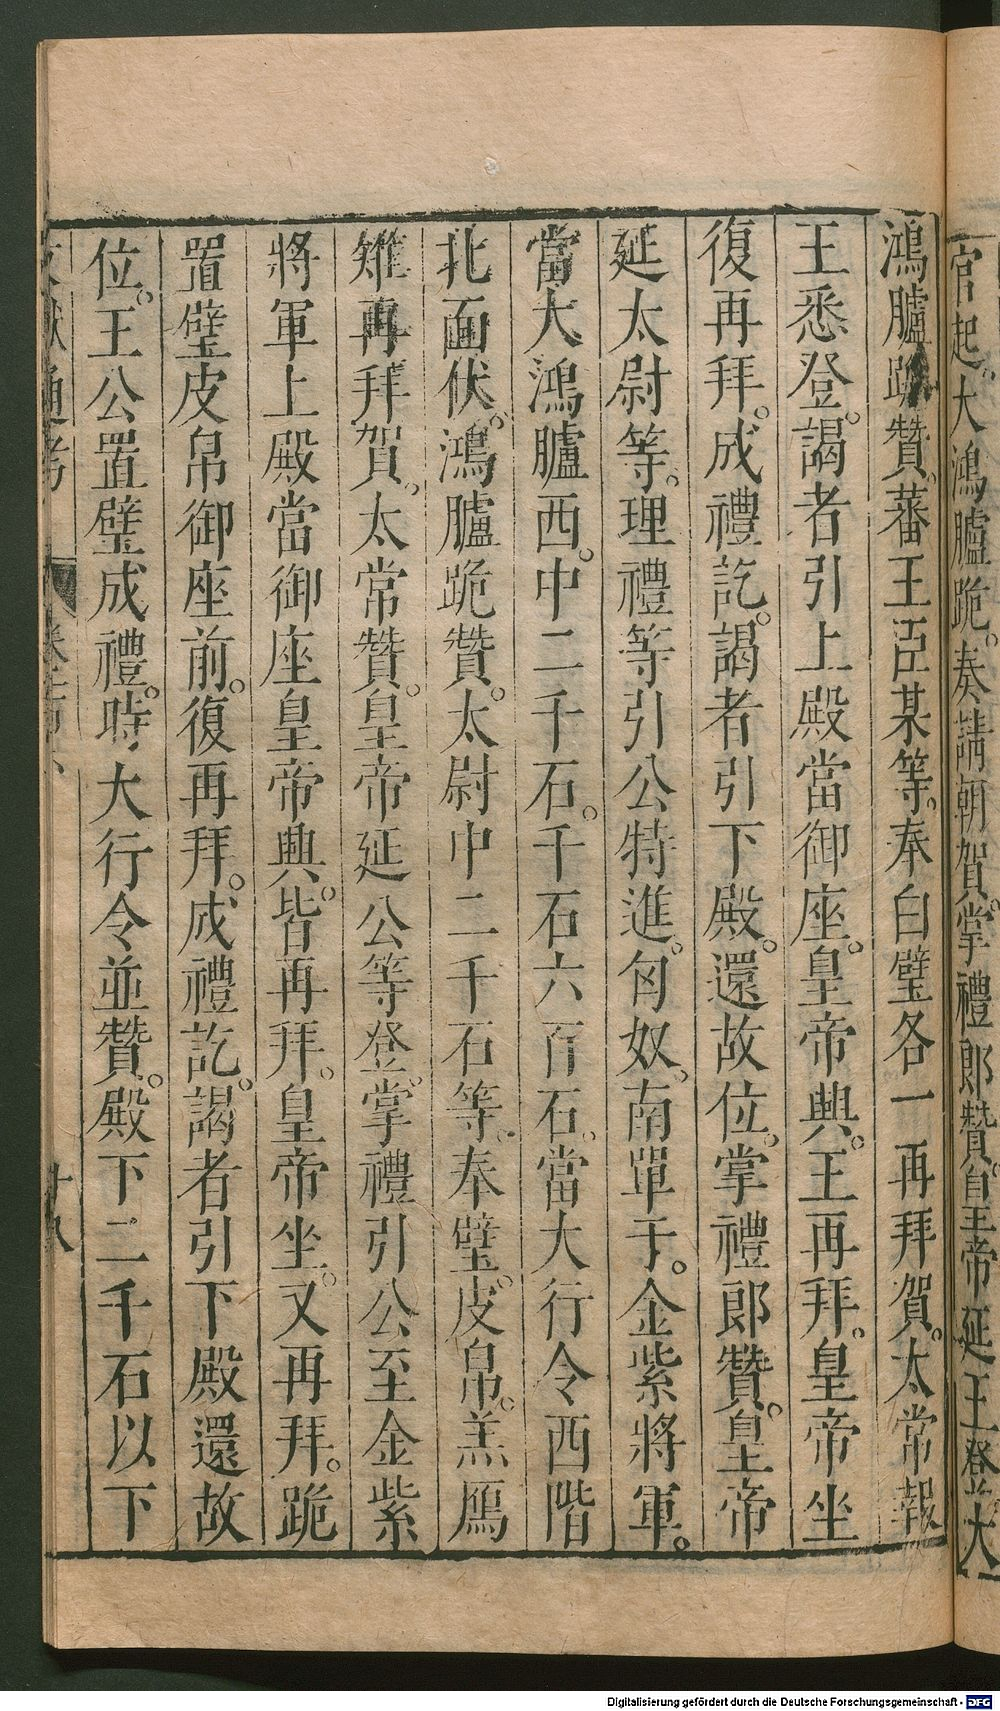 官起。大鴻臚跪。奏請朝賀。掌禮郎贊。皇帝延王登。大
鴻臚跪贊。蕃王臣某等。奉白璧各一再拜賀。太常報
王悉登。謁者引上殿當御座。皇帝興。王再拜。皇帝坐
復再拜。成禮訖。謁者引下殿。還故位。掌禮郎贊。皇帝
延太尉等。理禮等引公特進。匈奴。南單于。金紫將軍。
當大鴻臚西。中二千石。千石六百石。當大行令西階
北面伏。鴻臚跪贊。太尉中二千石等。奉璧。皮帛。羔鴈
雉再拜賀。太常贊。皇帝延公等登。掌禮引公至金紫
將軍上殿當御座皇帝興。皆再拜。皇帝坐。又再拜。跪
置璧皮帛御座前。復再拜。成禮訖。謁者引下殿還故
位。王公置璧成禮。時大行令並贊。殿下二千石以下
文獻通考
十八
Digitalisierung gefördert durch die Deutsche Forschungsgemeinschaft - DFG